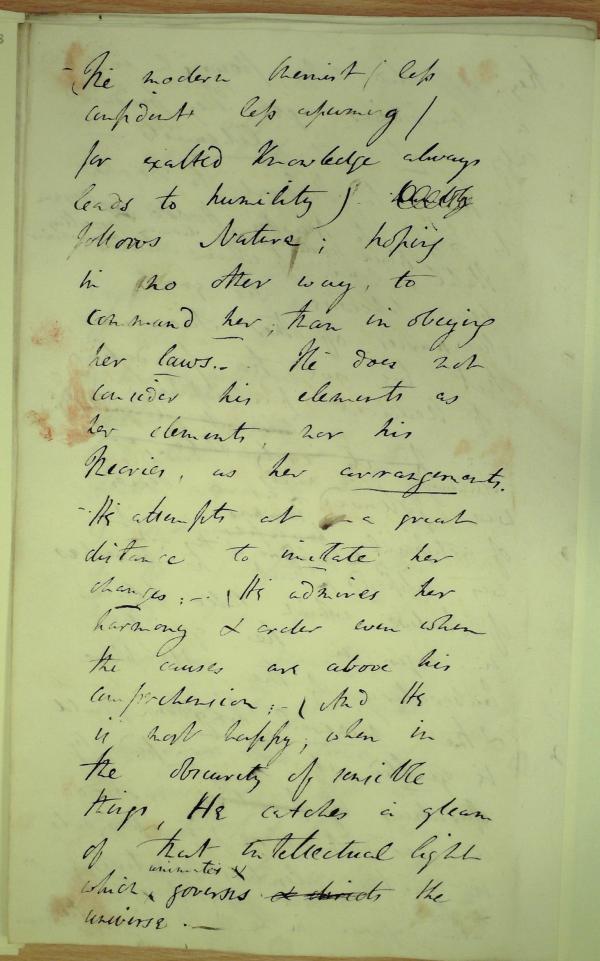 - The modern Chemist (less
confident less assuming /
for exalted Knowledge always
leads to humility)
follows Nature; hoping
in no other way, to
command her, than in obeying
her laws. - He does not
consider his elements as
her elements, nor his
Theories, as her arrangements.
- He attempts at a great
distance to imitate her
changes; - (He admires her
harmony & order even when
the causes are above his
comprehension; - ( And He
is most happy, when in
the obscurity of sensible
things, He catches a gleam
of that intellectual light
animates &
which governs & directs the
universe. -